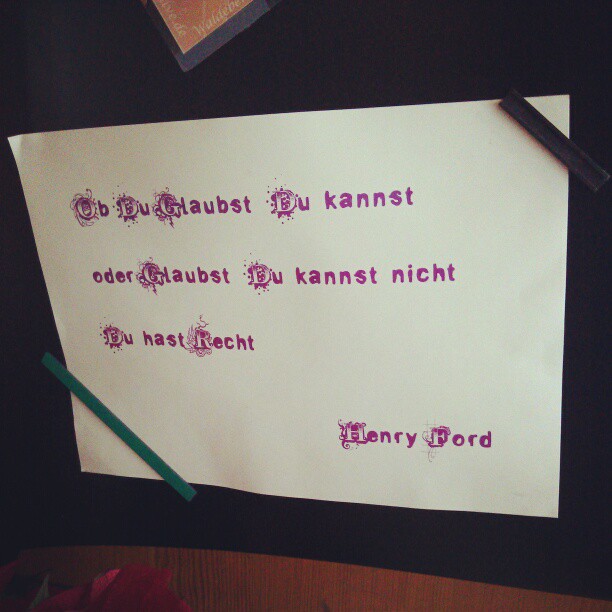 Ob Du Glaubst Du kannst
oder Glaubst Du kannst nicht
Du hast Recht
Henry Ford